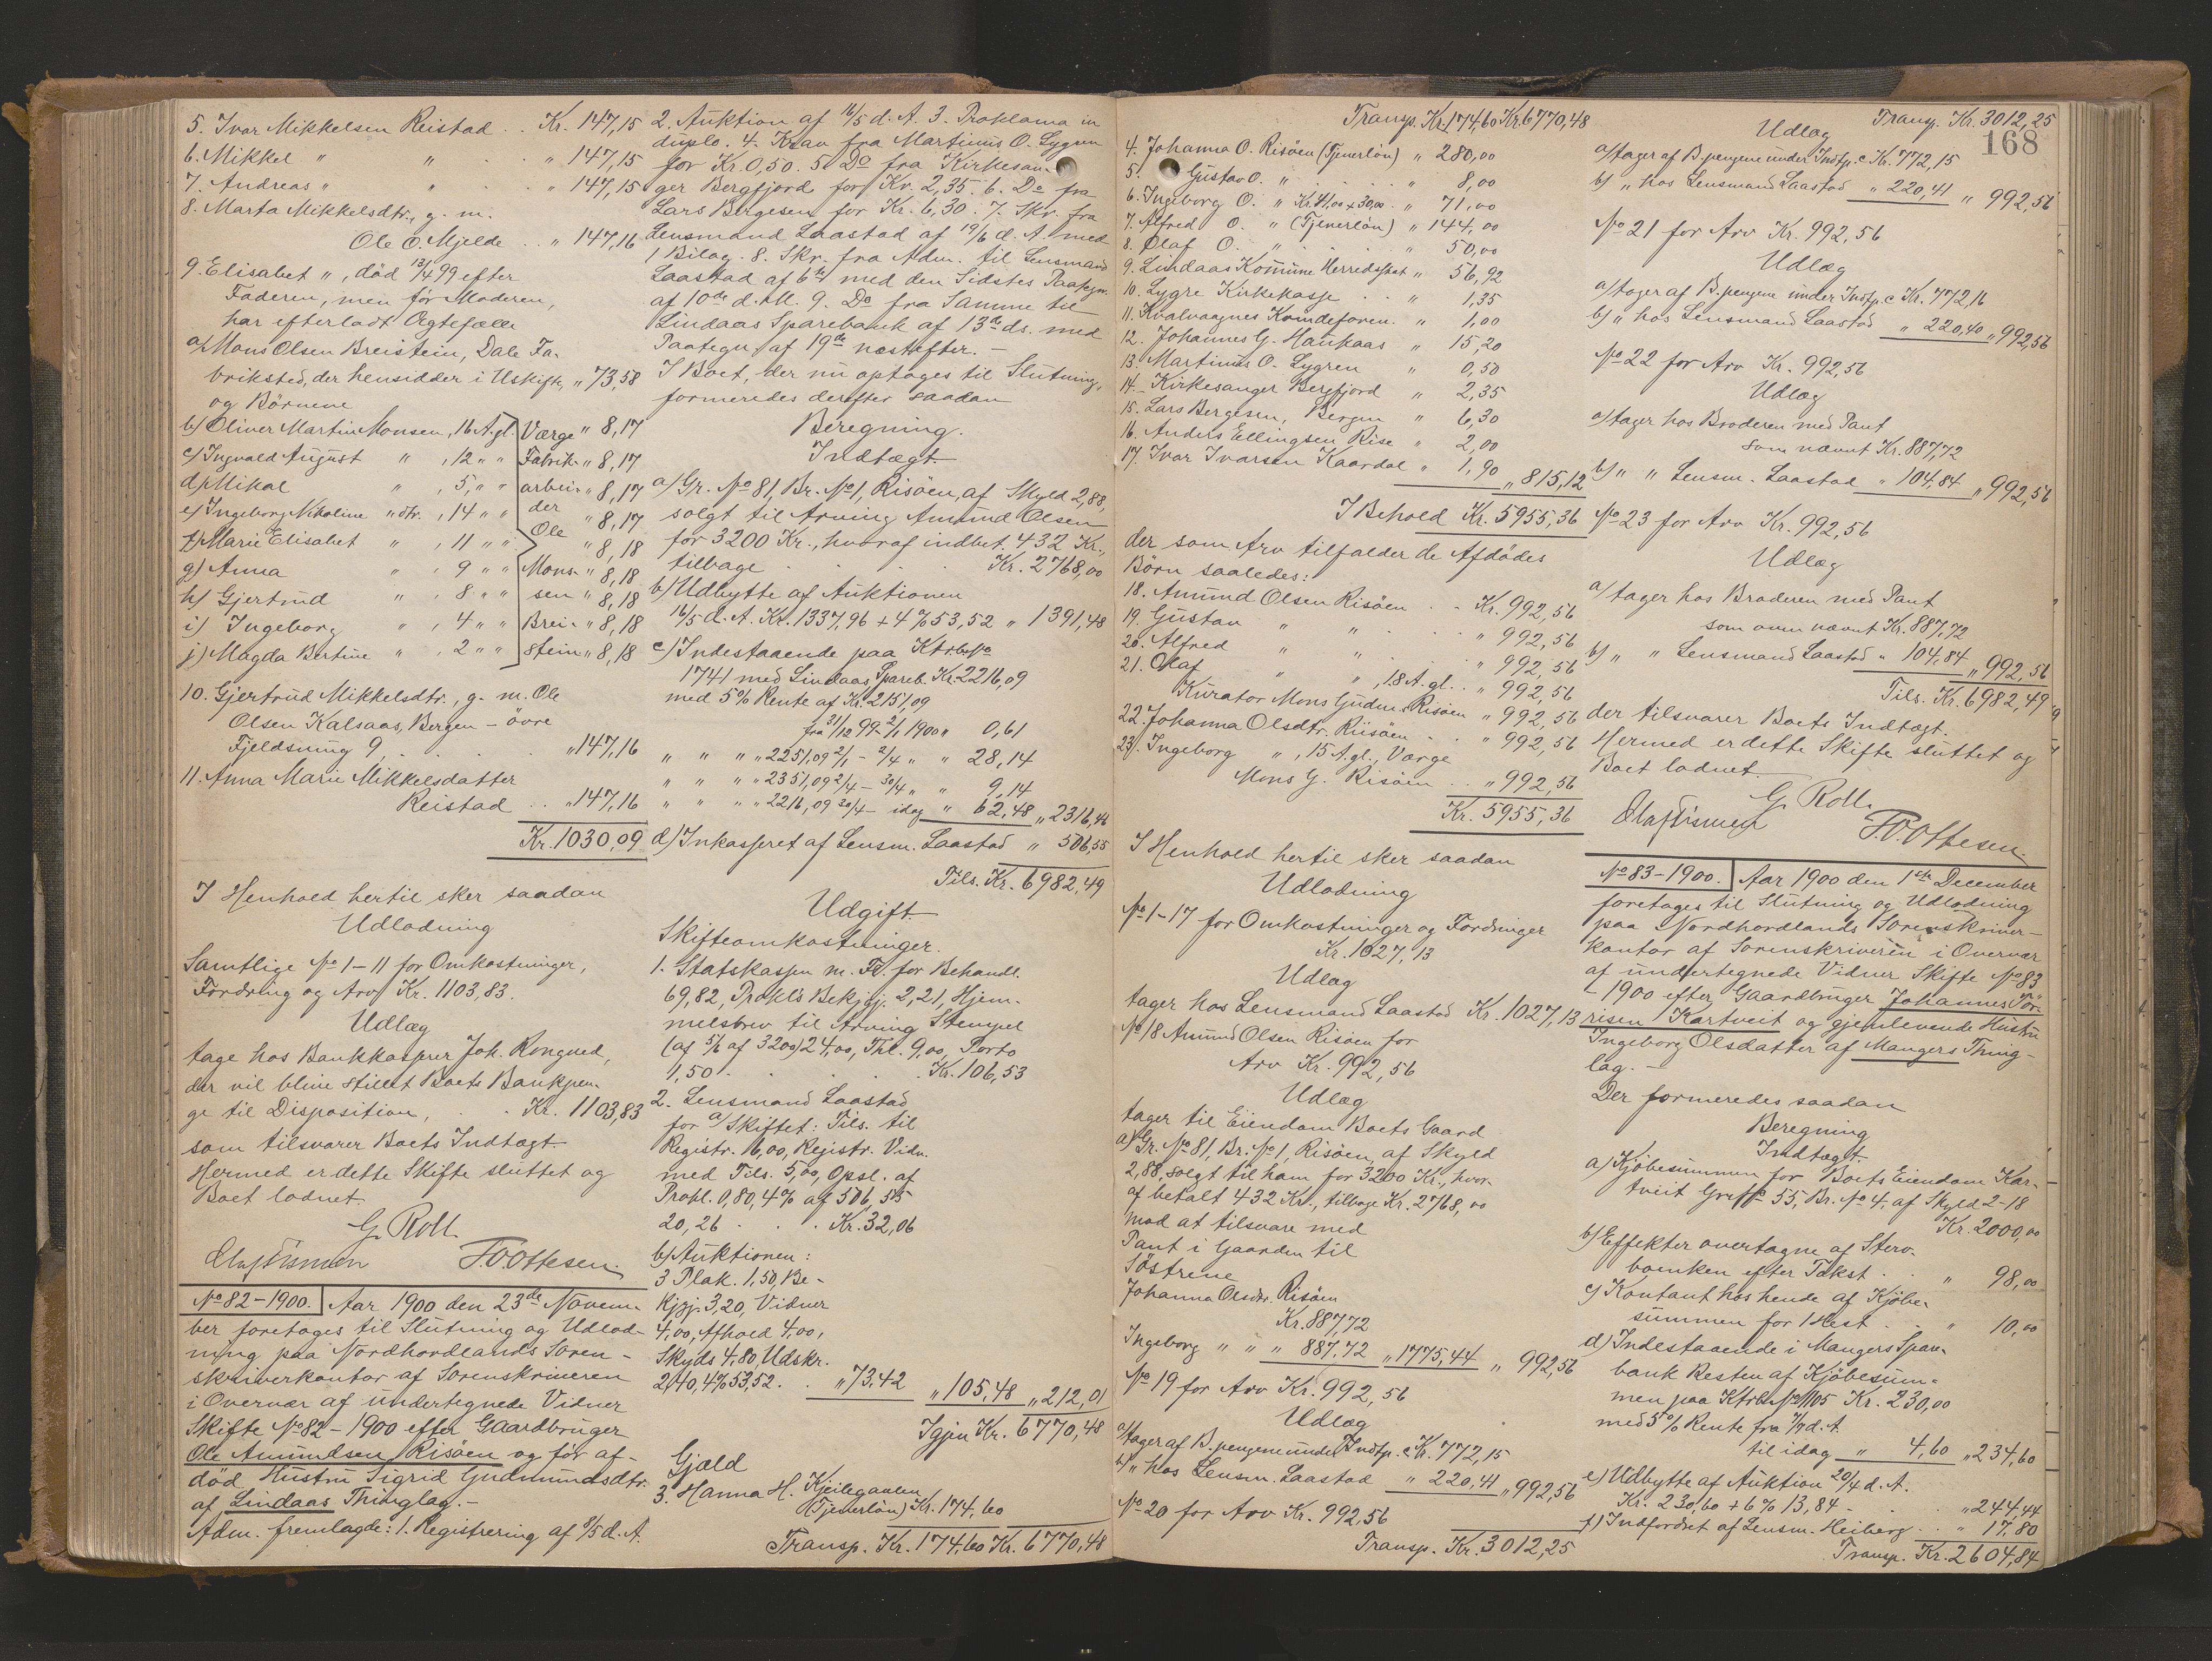 5. Ivar Mikkelsen Reistad . . Kr. 147,15
6. Mikkel " " . . " 147,15
7. Andreas " " . . " 147,15
8. Marta Mikkelsdtr., g. m.
Ole O. Mjelde . . " 147,16
9. Elisabet ", död 13/4 99 efter
Faderen, men för Moderen,
har efterladt Ægtefælle
a) Mons Olsen Breistein, Dale Fa-
briksted, der hensidder i Uskifte, " 73,58
og Börnene
b) Oliver Martin Monsen, 16 A. gl. Værge " 8,17
c) Ingvald August " , 12 " " Fabrik- " 8,17
d) Mikal " , 5 " " arbei- " 8,17
e) Ingeborg Nikoline " dtr. , 14 " " der " 8,17
f) Marie Elisabet " , 11 " " Ole " 8,18
g) Anna " , 9 " " Mons- " 8,18
h) Gjertrud " , 8 " " sen " 8,18
i) Ingeborg " , 4 " " Brei- " 8,18
j) Magda Bertine " , 2 " " stein " 8,18
10. Gjertrud Mikkelsdtr., g. m. Ole
Olsen Kalsaas, Bergen - övre
Fjeldsmug 9 . . . " 147,16
11. Anna Marie Mikkelsdatter
Reistad . . " 147,16
Kr. 1030,09
I Henhold hertil sker saadan
Udlodning
Samtlige No 1-11 for Omkostninger,
Fordring og Arv Kr. 1103,83.
Udlæg
tage hos Bankkasserer Joh. Rongved,
der vil blive stillet Boets Bankpen-
ge til Disposition, . . Kr. 1103,83
som tilsvarer Boets Indtægt.
Hermed er dette Skifte sluttet og
Boet lodnet.
G. Roll.
Olaf Tismen F.O. Ottesen.
No 82-1900. Aar 1900 den 23de Novem-
ber foretoges til Slutning og Udlod-
ning paa Nordhordlands Soren-
skriverkontor af Sorenskriveren
i Overvær af undertegnede Vidner
Skifte No 82-1900 efter Gaardbruger
Ole Amundsen Risöen og för af-
död Hustru Sigrid Gudmundsdtr.
af Lindaas Thinglag.-
Adm. fremlagde: 1. Registrering af 8/5 d. A.
2. Auktion af 16/5 d. A. 3. Proklama in
duplo. 4. Krav fra Martinus O. Lygren
for Kr. 0,50. 5. Do fra Kirkesan-
ger Bergfjord for Kr. 2,35. 6. Do fra
Lars Bergesen for Kr. 6,30. 7. Skr. fra
Lensmand Laastad af 19/6 d. A. med
1 Bilag. 8. Skr. fra Adm. til Lensmand
Laastad af 6te med den Sidstes Paategn.
af 10de d. M. 9. Do fra Samme til
Lindaas Sparebank af 13de ds. med
Paategn. af 19de næstefter.-
I Boet, der nu optages til Slutning,
formeredes derefter saadan
Beregning.
Indtægt.
a) Gr. No 81, Br. No 1, Risöen, af Skyld 2,88,
solgt til Arving Amund Olsen
for 3200 Kr., hvoraf indbet. 432 Kr.,
tilbage . . . Kr. 2768,00
b) Udbytte af Auktionen
16/5 d. A. Kr. 1337,96 + 4% 53,52 " 1391,48
c) Indestaaende paa Ktrb. No
1741 med Lindaas Spareb. Kr. 2216,09
med 5% Rente af Kr. 2151,09
fra 31/12 99 - 2/1 1900 " 0,61
" " " " 2251,09 2/1 - 2/4 " " 28,14
" " " " 2351,09 2/4 - 30/4 " " 9,14
" " " " 2216,09 30/4 - idag " 62,48 " 2316,46
d) Inkasseret af Lensm. Laastad " 506,55
Tils. Kr. 6982,49
Udgift.
Skifteomkostninger.
1. Statskassen m. Fl. for Behandl.
69,82, Prokl's Bekjgj. 2,21, Hjem-
melsbrev til Arving Stempel
(af 5/6 af 3200) 24,00, Thl. 9,00, Porto
1,50 . . . Kr. 106,53
2. Lensmand Laastad
for a) Skiftet: Tils. til
Registr. 6,00, Registr. Vidn.
med Tils. 5,00, Opsl. af
Prokl. 0,80, 4% af 506,55
20,26 . . Kr. 32,06
b) Auktionen:
3 Plak. 1,50, Be-
kjgj. 3,20, Vidner
4,00, Afhold 4,00,
Skyds 4,80, Udskr.
2,40, 4% 53,52. . " 73,42 " 105,48 " 212,01
Igjen Kr. 6770,48
Gjæld
3. Hanna H. Kjeilegavlen
(Tjenerlön) Kr. 174,60
Transp. Kr. 174,60 Kr. 6770,48
Transp. Kr. 174,60 Kr. 6770,48
4. Johanna O. Risöen (Tjenerlön) " 280,00
5. Gustav O. " . . . " 8,00
6. Ingeborg O. " Kr. 41,00 + 30,00 . " 71,00
7. Alfred O. " (Tjenerlön) " 144,00
8. Olaf O. " . . " 50,00
9. Lindaas Komune Herredsskat " 56,92
10. Lygre Kirkekasse . . " 1,35
11. Kvalvaagnes Kvindeforen. " 1,00
12. Johannes G. Haukaas " 15,20
13. Martinus O. Lygren " 0,50
14. Kirkesanger Bergfjord " 2,35
15. Lars Bergesen, Bergen " 6,30
16. Anders Ellingsen Rise " 2,00
17. Ivar Ivarsen Kaardal " 1,90 " 815,12
I Behold Kr. 5955,36
der som Arv tilfalder de Afdödes
Börn saaledes:
18. Amund Olsen Risöen . . Kr. 992,56
19. Gustav " " . . " 992,56
20. Alfred " " . . " 992,56
21. Olaf " " , 18 A. gl. . " 992,56
Kurator Mons Gudm. Risöen " 992,56
22. Johanna Olsdtr. Risöen . . " 992,56
23. Ingeborg " , 15 A. gl., Værge
Mons G. Risöen . . " 992,56
Kr. 5955,36
I Henhold hertil sker saadan
Udlodning
No 1-17 for Omkostninger og Fordringer
Kr. 1027,13
Udlæg
tager hos Lensmand Laastad Kr. 1027,13
No 18 Amund Olsen Risöen for
Arv Kr. 992,56
Udlæg
tager til Eiendom Boets Gaard
a) Gr. No 81, Br. No 1, Risöen, af Skyld
2,88, solgt til ham for 3200 Kr., hvor-
af betalt 432 Kr., tilbage Kr. 2768,00
mod at tilsvare med
Pant i Gaarden til
Söstrene
Johanna Olsdtr. Risöen
Kr. 887,72
Ingeborg " " " 887,72 " 1775,44 " 992,56
No 19 for Arv Kr. 992,56
Udlæg
a) tager af B. pengene under Indtg. c Kr. 772,15
b) " hos Lensm. Laastad " 220,41 " 992,56
No 20 for Arv Kr. 992,56
Transp. Kr. 3012,25
Transp. Kr. 3012,25
168
Udlæg
a) tager af B. pengene under Indtg. c Kr. 772,15
b) " hos Lensmand Laastad " 220,41 " 992,56
No 21 for Arv Kr. 992,56
Udlæg
a) tager af B. pengene under Indtg. c Kr. 772,16
b) " hos Lensmand Laastad " 220,40 " 992,56
No 22 for Arv Kr. 992,56
Udlæg
a) tager hos Broderen med Pant
som nævnt Kr. 887,72
b) " " Lensm. Laastad " 104,84 " 992,56
No 23 for Arv Kr. 992,56
Udlæg
a) tager hos Broderen med Pant
som ovm nævnt Kr. 887,72
b) " " Lensmand Laastad " 104,84 " 992,56
Tils. Kr. 6982,49
der tilsvarer Boets Indtægt.
Hermed er dette Skifte sluttet og
Boet lodnet.
G. Roll.
Olaf Tismen F.O. Ottesen.
No 83-1900. Aar 1900 den 1ste December
foretoges til Slutning og Udlodning
paa Nordhordlands Sorenskriver-
kontor af Sorenskriveren i Overvær
af undertegnede Vidner Skifte No 83
-1900 efter Gaardbruger Johannes Tor-
risen Kartveit og gjenlevende Hustru
Ingeborg Olsdatter af Mangers Thing-
lag.-
Der formeredes saadan
Beregning
Indtægt.
a) Kjöbesummen for Boets Eiendom Kar-
tveit Gr. No 55, Br. No 4, af Skyld 2-18
Kr. 2000,00
b) Effekter overtagne af Sterv-
boenken efter Takst . . " 98,00
c) Kontant hos hende af Kjöbe-
summen for 1 Hest . . " 10,00
d) Indestaaende i Mangers Spare-
bank Resten af Kjöbesum-
men paa Ktrb. No 1105 Kr. 230,00
med 5% Rente fra d. A.
til idag " 4,60 " 234,60
e) Udbytte af Auktion 20/4 d. A.
Kr. 230,60 + 6% 13,84 . . " 244,44
f) Indfordret af Lensm. Heiberg . . " 17,80
Transp. Kr. 2604,84